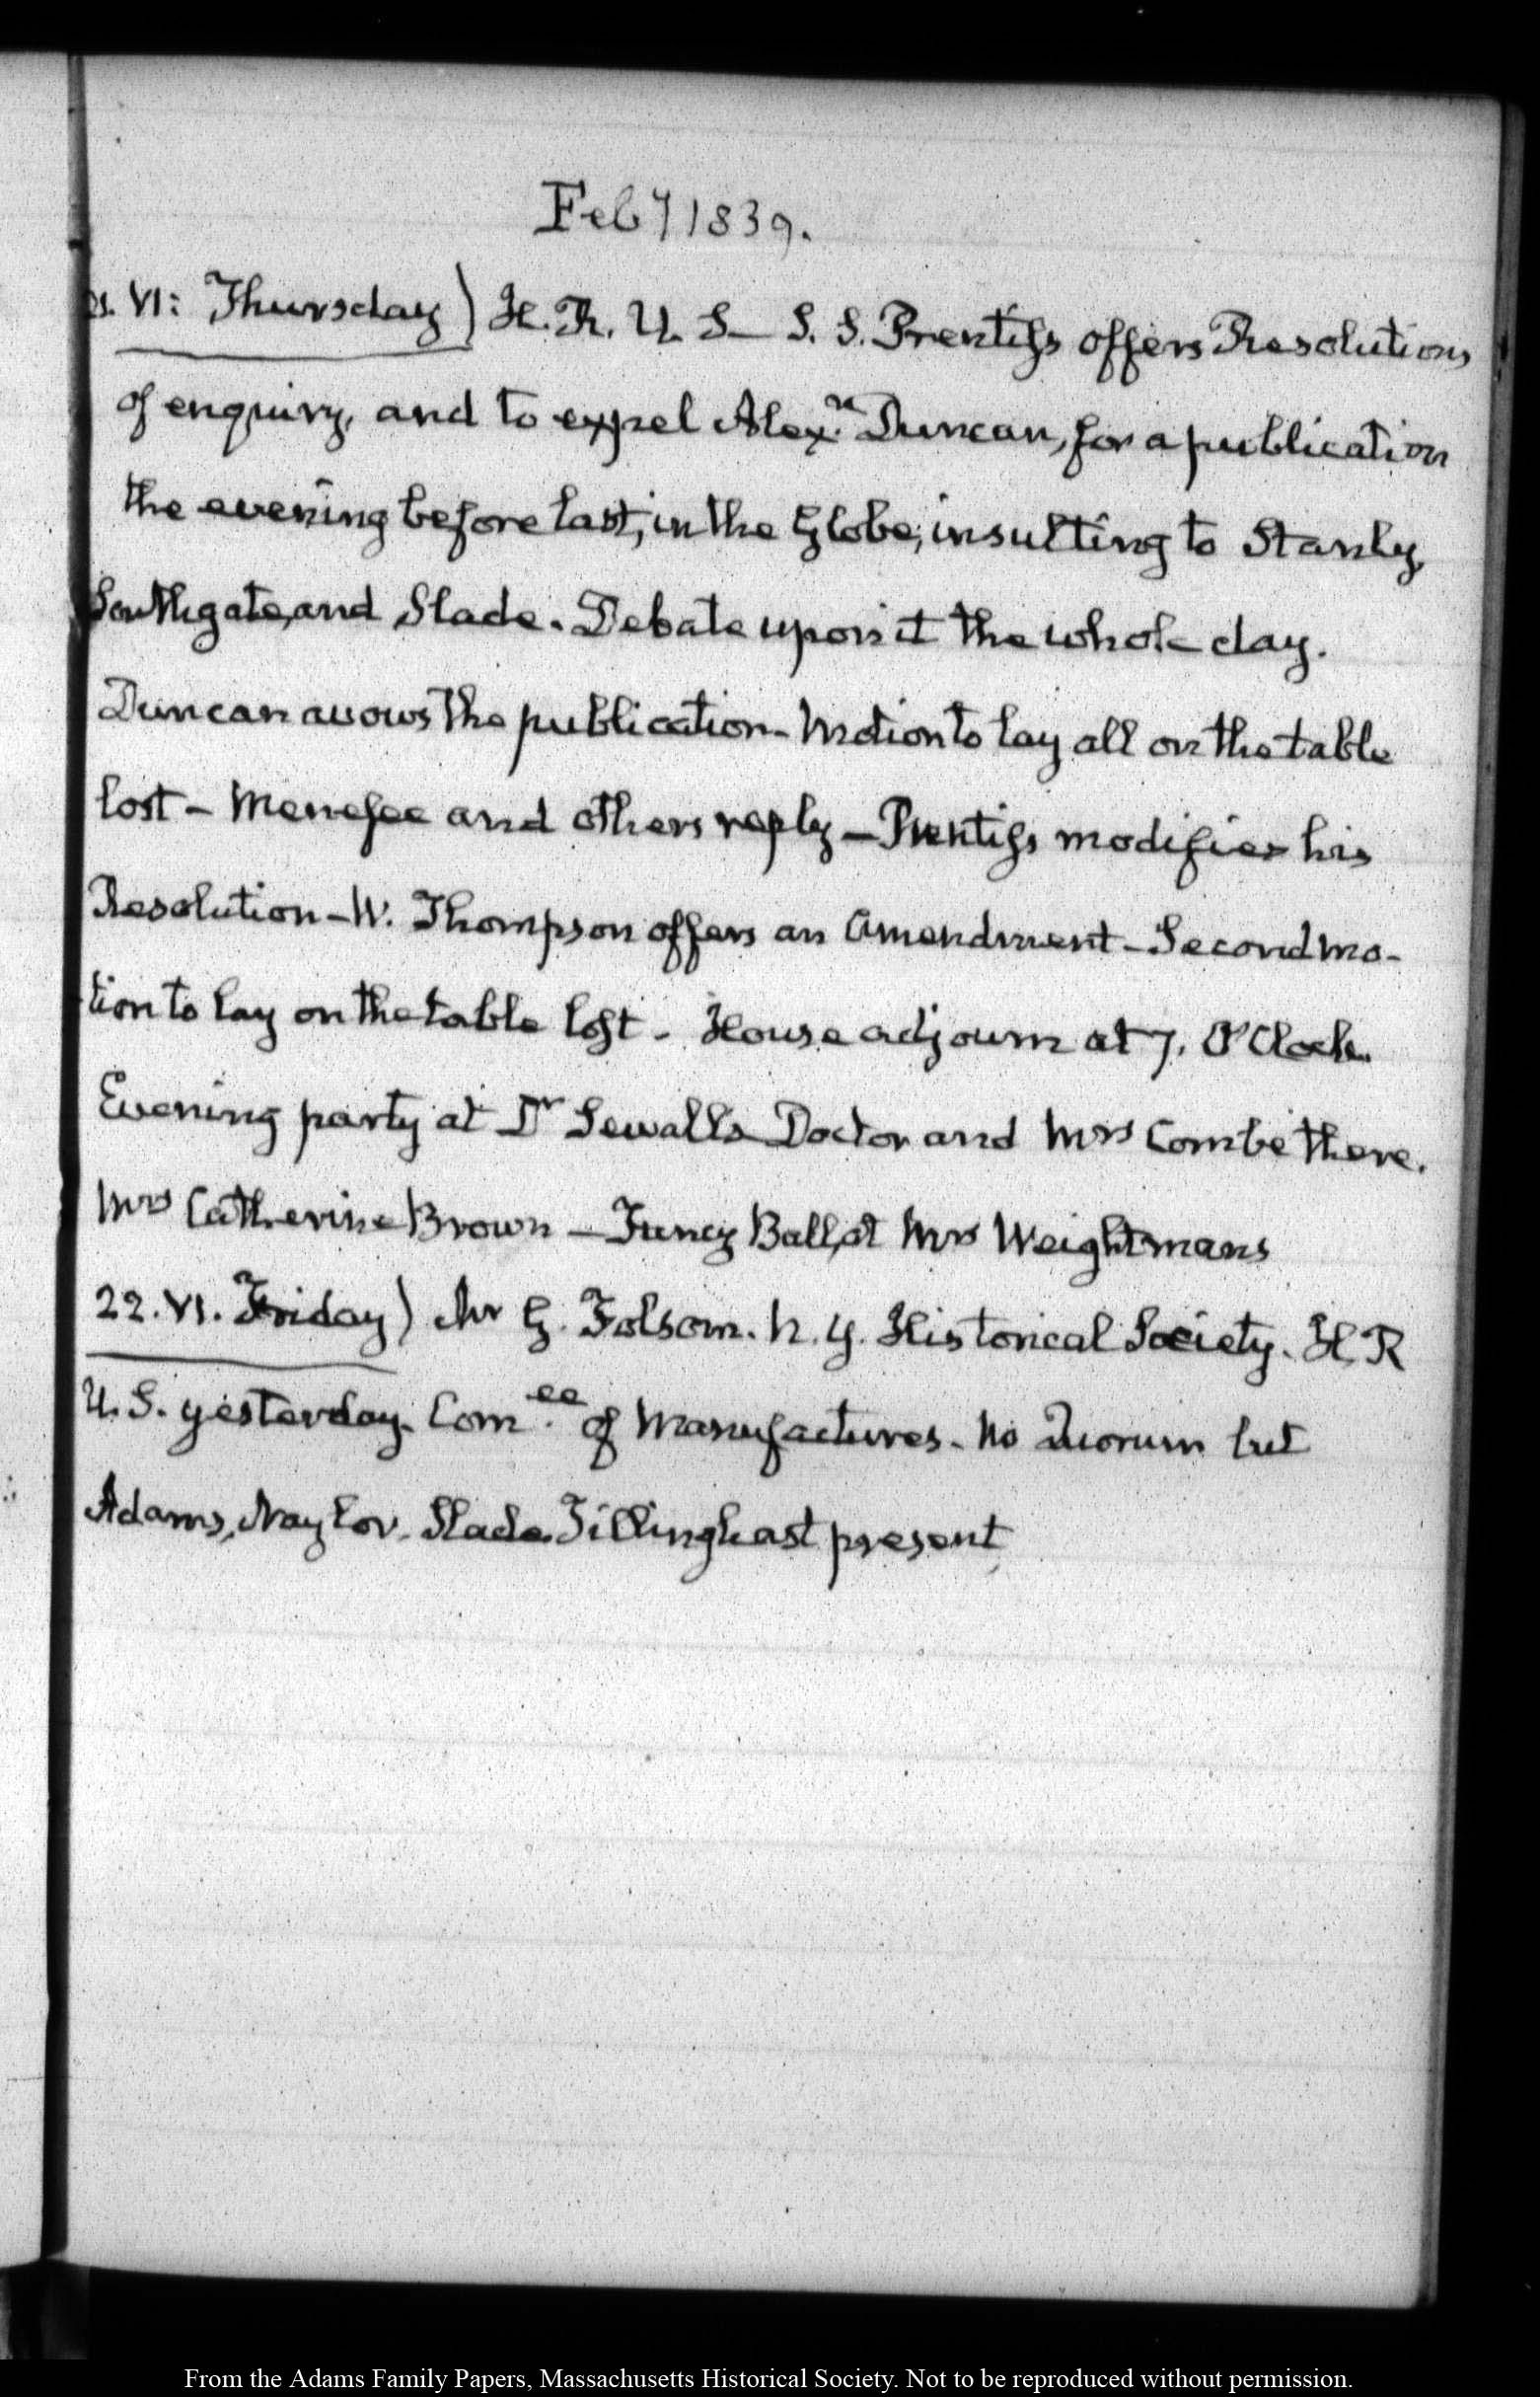 Feby 1839.
21. VI: Thursday) H. R. U. S — S. S. Prentiss offers Resolutions
of enquiry, and to expel Alexr. Duncan, for a publication
the evening before last, in the Globe, insulting to Stanly,
Southgate, and Slade. Debate upon it the whole day.
Duncan avows the publication — Motion to lay all on the table
lost — Menefee and others reply — Prentiss modifies his
Resolution — W. Thompson offers an Amendment — Second mo-
tion to lay on the table lost — House adjourn at 7. O'Clock.
Evening party at Dr Sewall's Doctor and Mrs Combe there.
Mrs Catherine Brown — Fancy Ball, at Mrs Weightmans
22. VI. Friday) Mr G. Folsom. N. Y. Historical Society. H. R
U. S. yesterday. Com.ee of Manufactures — No Quorum but
Adams, Naylor, Slade, Tillinghast present
From the Adams Family Papers, Massachusetts Historical Society. Not to be reproduced without permission.